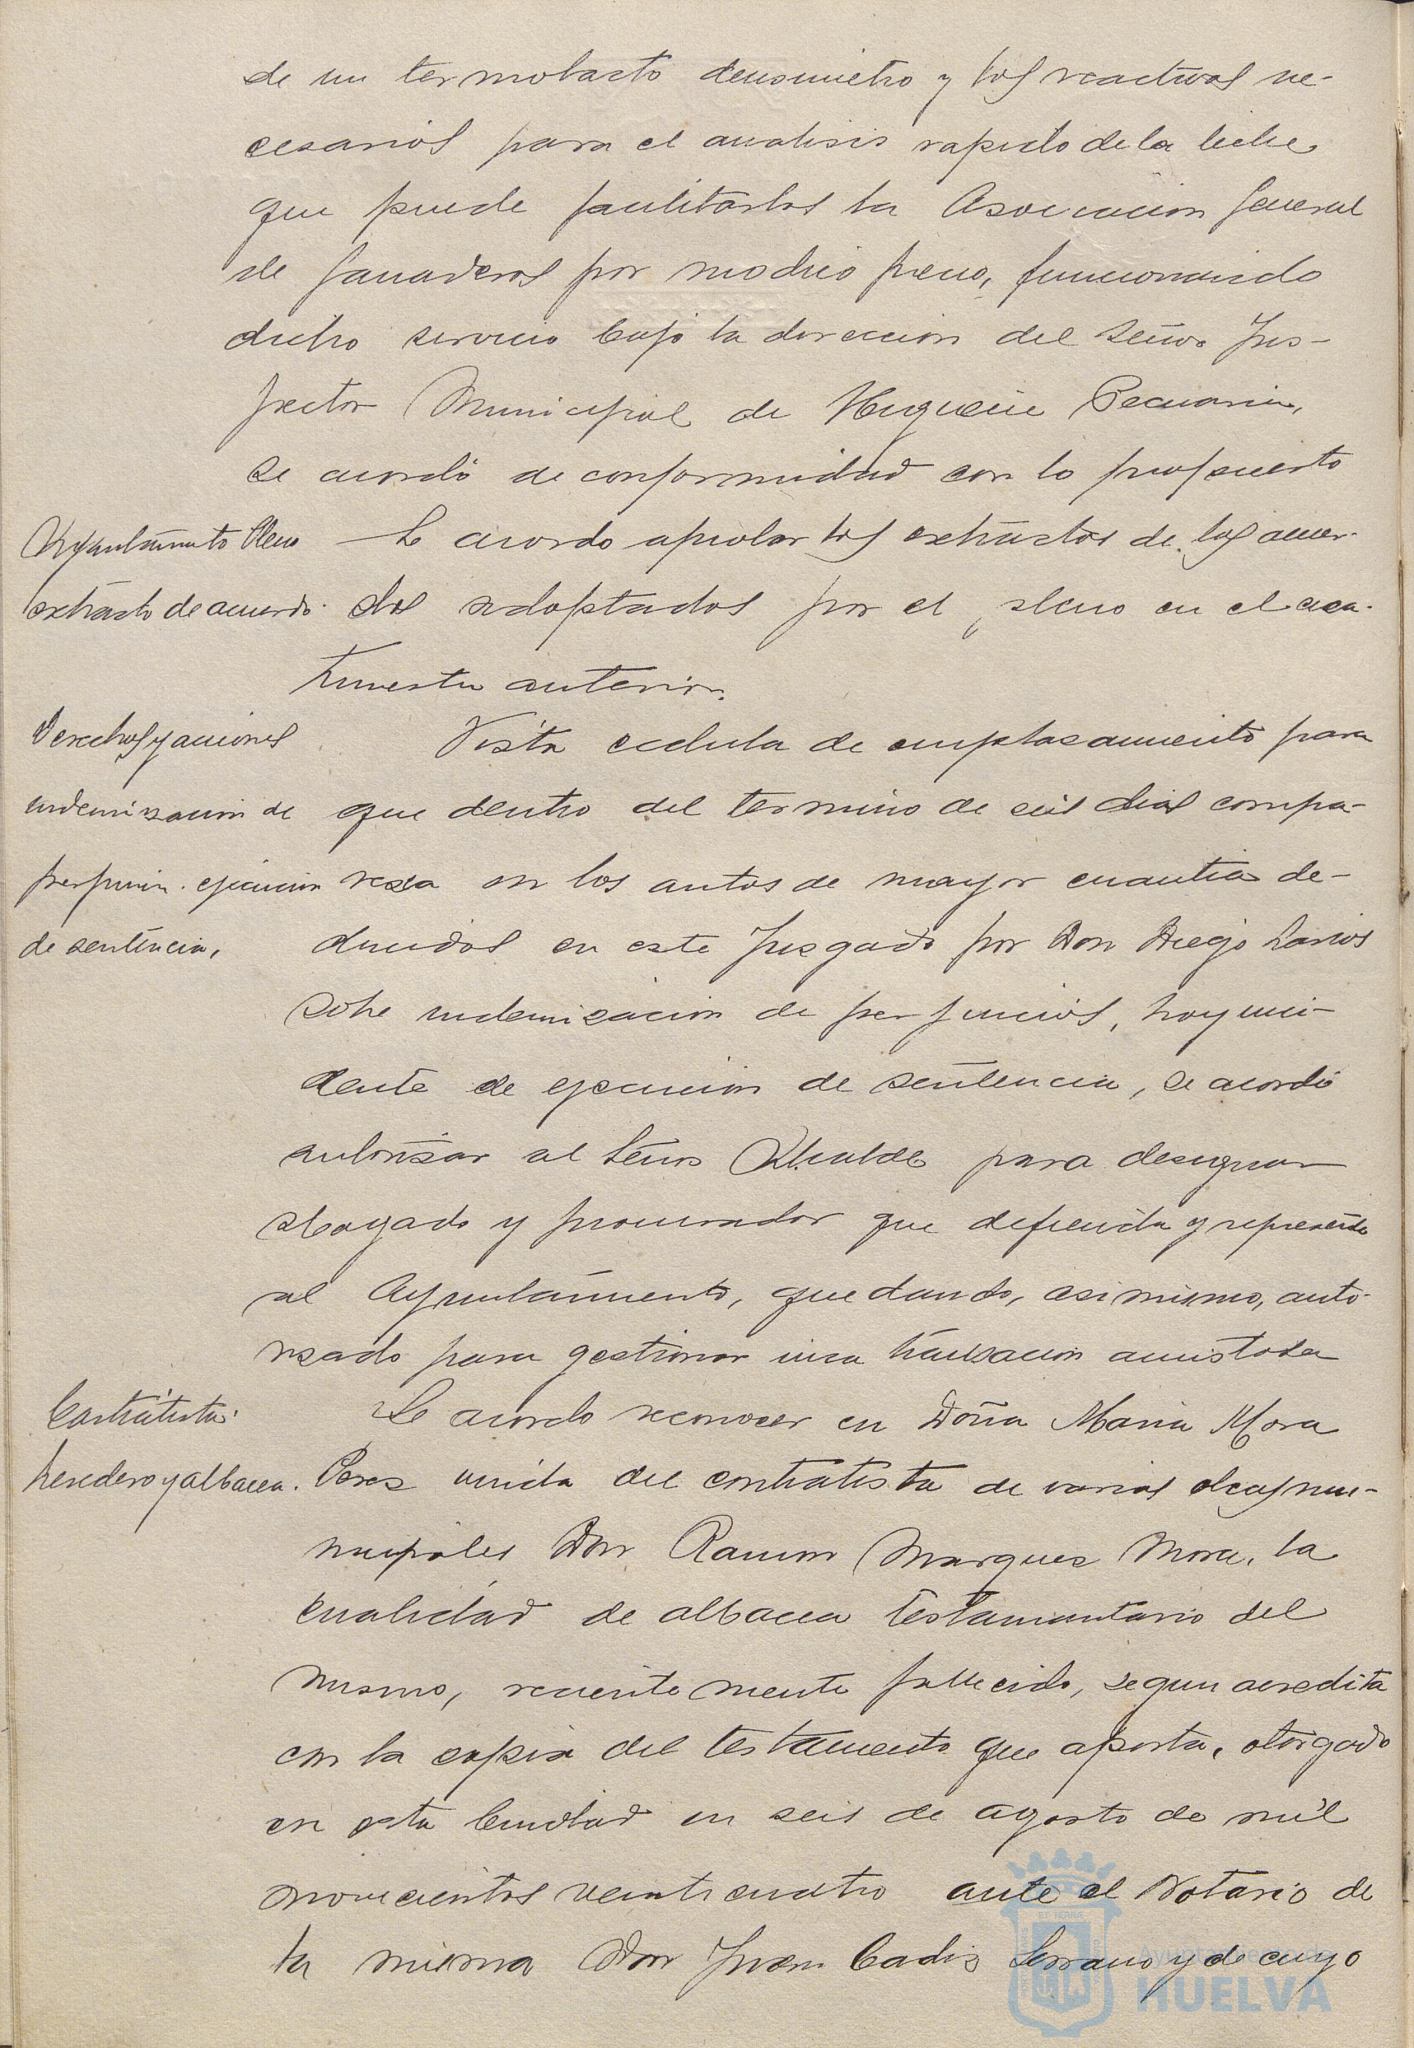 de un termolacto densimetro y los reactivos ne-
cesarios para el analisis rapido de la leche
que puede facilitarlos la Asociacion General
de Ganaderos por modico precio, funcionando
dicho servicio bajo la direccion del Señor Ins-
pector Municipal de Higiene Pecuaria,
se acordó de conformidad con lo propuesto
Ayuntamiento Pleno
extracto de acuerdo.
Se acordo aprobar los extractos de los acuer-
dos adoptados por el pleno en el cua-
trimestre anterior.
Derechos y acciones
indemnizacion de
perjuicio. ejecucion
de sentencia,
Vista cedula de emplasamiento para
que dentro del termino de seis dias compa-
resca en los autos de mayor cuantia de-
ducidos en este Jusgado por Don Diego Larios
sobre indemnizacion de perjuicios, hoy inci-
dente de ejecucion de sentencia, se acordó
autorizar al Señor Alcalde para designar
abogado y procurador que defienda y represente
al Ayuntamiento, quedando, asimismo, auto-
rizado para gestionar una transacion amistosa
Contratista:
heredero y albacea.
Se acordo reconocer en Doña Maria Mora
Peres viuda del contratista de varias obras mu-
nicipales Don Ramon Marquez Mora, la
cualidad de albacea testamentario del
mismo, recientemente fallecido, segun acredita
con la copia del testamento que aporta, otorgado
en esta Ciudad en seis de agosto de mil
novecientos veinticuatro ante el Notario de
la misma Don Juan Cadis Serrano y de cuyo
Ayuntamiento de
HUELVA